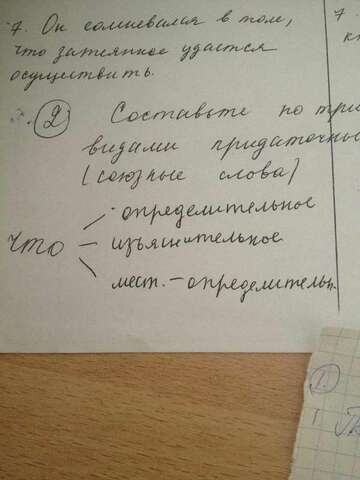 7. Он сомневался в том,
что затеянное удастся
осуществить.
2 Составьте по три
видами придаточные
(союзные слова)
что
- определительное
- изъяснительное
- мест. - определительн.
7
1.